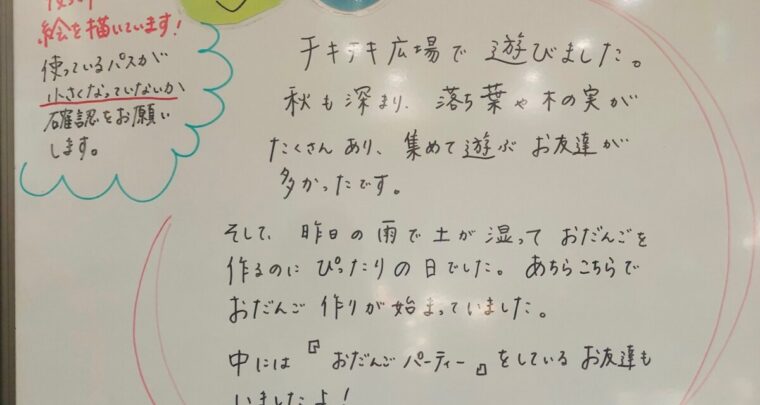 絵を描いています!
使っているパスが
小さくなっていないか
確認をお願い
します。
チキチキ広場で 遊びました。
秋も深まり、落ち葉や木の実が
たくさんあり、集めて遊ぶ お友達が
多かったです。
そして、昨日の雨で土が湿って おだんごを
作るのに ぴったりの日でした。あちらこちらで
おだんご 作りが始まっていました。
中には『おだんごパーティー』をしているお友達も
いましたよ!